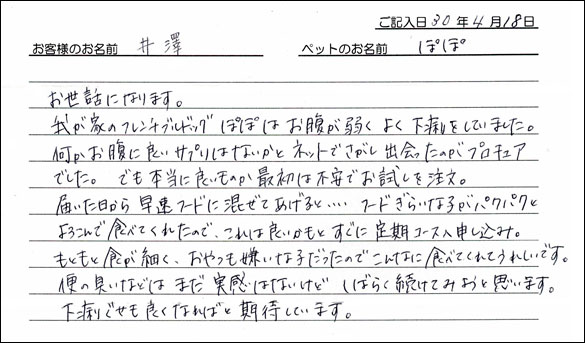 ご記入日 30 年 4 月 18 日
お客様のお名前 井澤 ペットのお名前 ぽぽ
お世話になります。
我が家のフレンチブルドッグ ぽぽは お腹が弱く よく 下痢をしていました。
何かお腹に良いサプリはないかと ネットでさがし 出会ったのがプロキュア
でした。 でも本当に良いものか 最初は不安でお試しを注文。
届いた日から 早速フードに混ぜてあげると‥‥ フードぎらいな子がパクパクと
よろこんで食べてくれたので、これは良いかもと すぐに定期コースへ申し込み。
もともと 食が細く、おやつも嫌いな子だったので こんなに食べてくれてうれしいです。
便の臭いなどは まだ 実感はないけど しばらく続けてみようと思います。
下痢ぐせも良くなればと 期待しています。